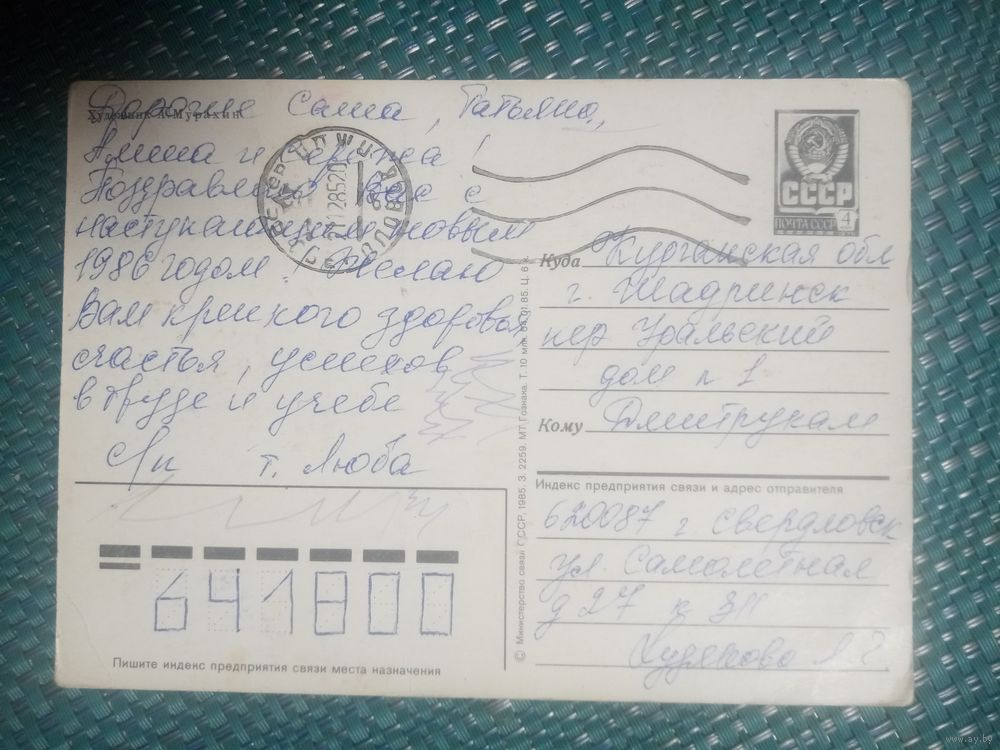 Дорогие Саша, Татьяна,
Художник А. Мурахин
и !
Поздравляю Вас с
наступающим новым
1986 годом! Желаю
Вам крепкого здоровья,
счастья, успехов
в труде и учебе
т. Люба
СССР
ПОЧТА СССР 4
Куда Курганская обл
г. Шадринск
пер Уральский
дом n 1
Кому Дмитрукам
Индекс предприятия связи и адрес отправителя
620087 г. Свердловск
ул. Самолетная
д 27 к
641800
Пишите индекс предприятия связи места назначения
© Министерство связи СССР, 1985. З. 2259. МТ Гознака. Т. 10 млн. Ц. 6 к.
www.ay.by